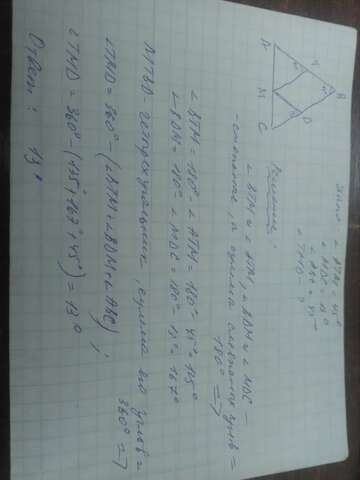 A
T
B
M
D
C
Дано:
∠ ATM = 45°
∠ MDC = 13°
∠ ABC = 45°
∠ TMD - ?
Решение:
∠ BTM и ∠ ATM, ∠ BDM и ∠ MDC -
- смежные, а сумма смежных углов =
180° =>
∠ BTM = 180° - ∠ ATM = 180° - 45° = 135°
∠ BDM = 180° - ∠ MDC = 180° - 13° = 167°
MTBD - четырёхугольник, сумма его углов =
360° =>
∠TMD = 360° - (∠BTM + ∠BDM + ∠ABC);
∠TMD = 360° - (135° + 167° + 45°) = 13°
Ответ: 13°